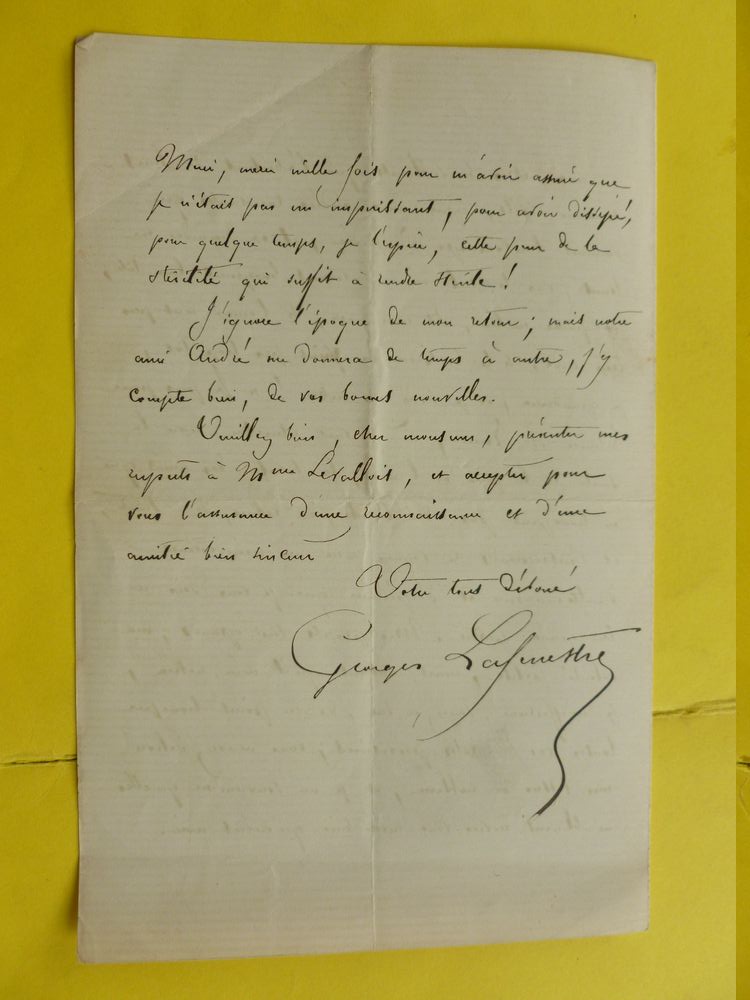 Merci, merci mille fois pour m'avoir assuré que
je n'étais pas un impuissant, pour avoir dissipé,
pour quelque temps, je l'espère, cette peur de la
stérilité qui suffit à rendre stérile !
J'ignore l'époque de mon retour ; mais notre
ami André me donnera de temps à autre, j'y
compte bien, de vos bonnes nouvelles.
Veuillez bien, cher monsieur, présenter mes
respects à Mme Levallois, et accepter pour
vous l'assurance d'une reconnaissance et d'une
amitié bien sincère
Votre tout dévoué
Georges Lafenestre